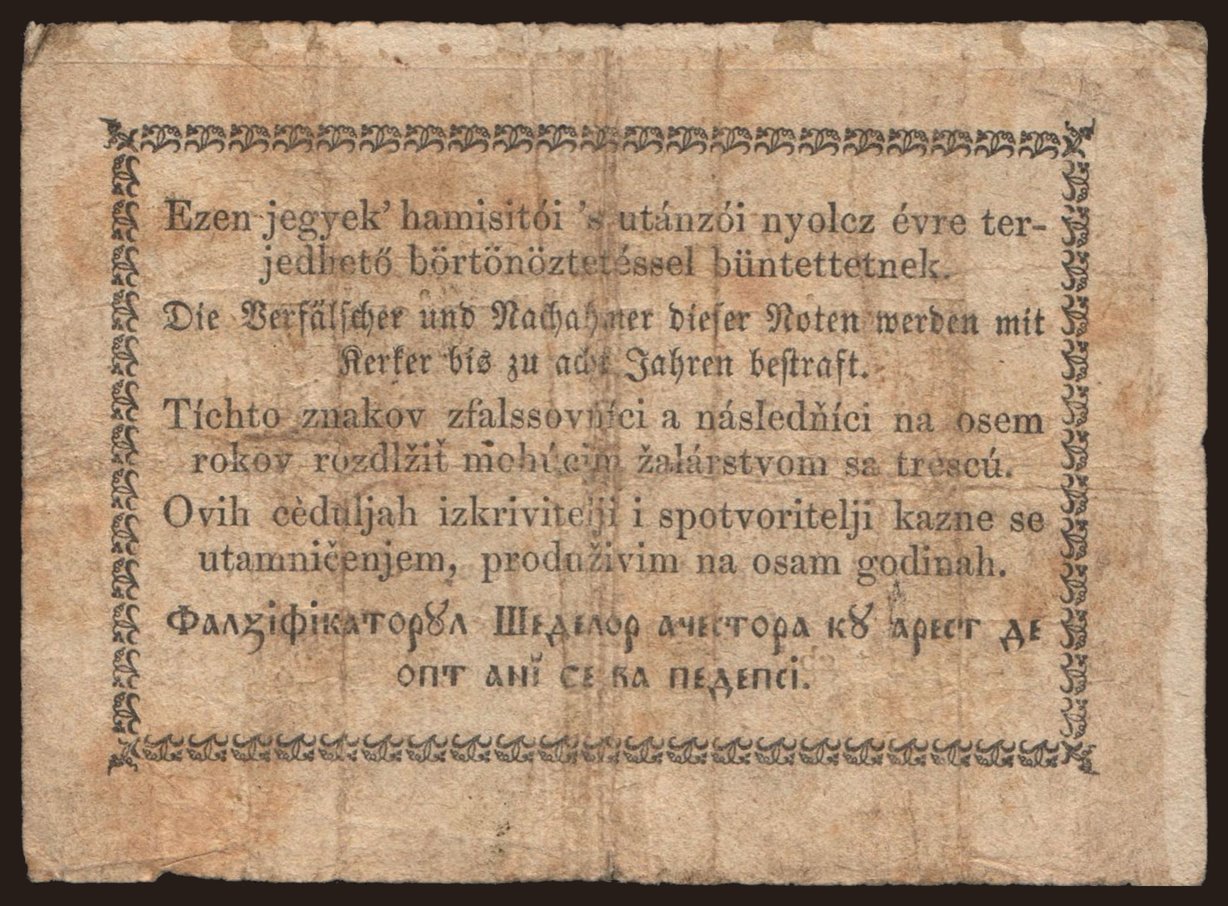 Ezen jegyek’ hamisitói ’s utánzói nyolcz évre ter-
jedhető börtönöztetéssel büntettetnek.
Die Verfälscher und Nachahmer dieser Noten werden mit
Kerker bis zu acht Jahren bestraft.
Tíchto znakov zfalssovníci a následňíci na osem
rokov rozdlžiť mohúcim žalárstvom sa trescú.
Ovih cèduljah izkrivitelji i spotvoritelji kazne se
utamničenjem, produživim na osam godinah.
Фалꙁіфікаторꙋл Шеделор ачестора кꙋ арест де
опт анĭ се ва педепсі.